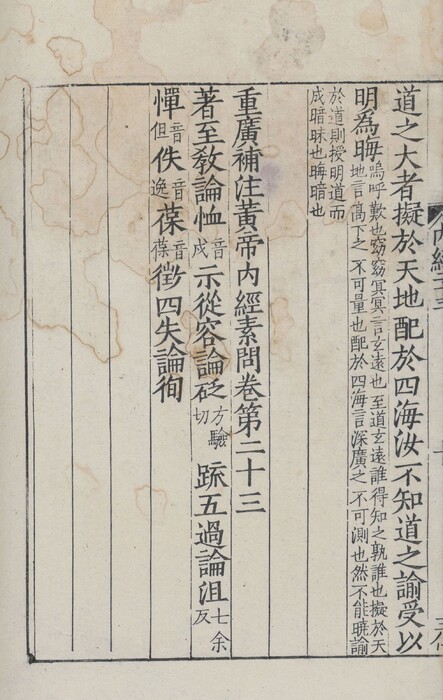 道之大者擬於天地配於四海汝不知道之諭受以
明爲晦嗚呼歎也窈窈冥冥言玄遠也至道玄遠誰得知之孰誰也擬於天
地言髙下之不可量也配於四海言深廣之不可測也然不能曉諭
於道則授明道而
成暗昧也晦暗也
重廣補注黃帝內經素問卷第二十三
著至教論恤音戌示從容論砭方驗切䟽五過論沮七余反
憚音但佚音逸葆音葆徵四失論徇